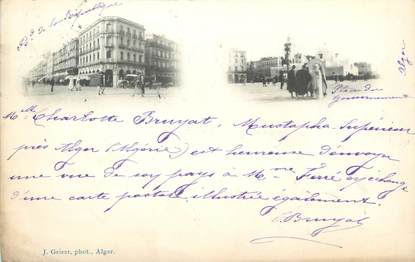 Bd de la République
Place du
Gouvernement
Alger
Mlle Charlotte Bruyat, Mustapha-Supérieur
près Alger (Algérie) est heureuse d'envoyer
une vue de son pays à Mme Ferré en échange
d'une carte postale illustrée également.
C. Bruyat
J. Geiser, phot., Alger.